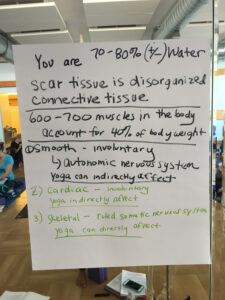 You are 70-80% (+/-) Water
scar tissue is disorganized
connective tissue
600-700 muscles in the body
account for 40% of body weight
① Smooth - involuntary
↳ autonomic nervous system
yoga can indirectly affect
2) Cardiac - involuntary
yoga indirectly affect
3) Skeletal - ruled somatic nervous system
yoga can directly affect